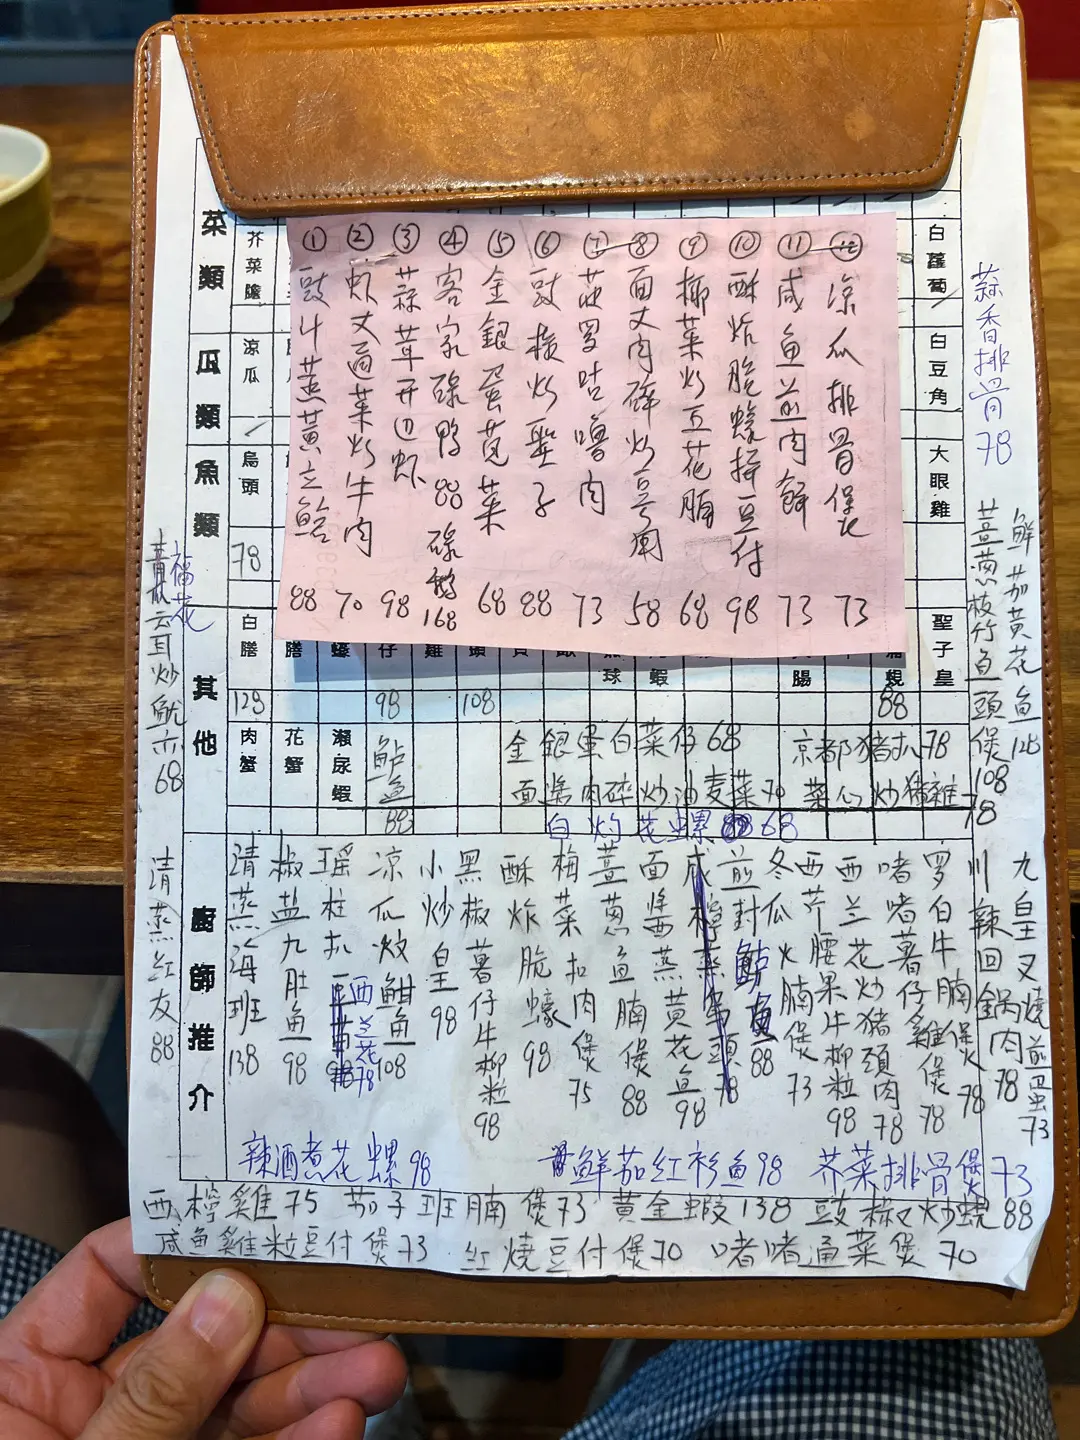 菜類
瓜類
魚類
其他
廚師推介
芥菜膽
涼瓜
烏頭
78
白膳
128
肉蟹
花蟹
瀨尿蝦
鱸魚
88
98
108
白蘿蔔
白豆角
大眼雞
聖子皇
88
① 豉汁蒸黃立鯧 88
② 虾丈通菜炒牛肉 70
③ 蒜茸开边虾 98
④ 客家碌鸭 88 碌鵝 168
⑤ 金銀蛋莧菜 68
⑥ 豉椒炒聖子 88
⑦ 菠罗咕嚕肉 73
⑧ 面丈肉碎炒豆角 58
⑨ 椰菜炒五花腩 68
⑩ 酥炸脆蠔拼豆付 98
⑪ 咸鱼煎肉餅 73
⑫ 涼瓜排骨煲 73
金銀蛋白菜仔 68
京都猪扒 78
面醬肉碎炒油麦菜 70
菜心炒猪雜 78
白灼花螺 68
蒜香排骨 78
鮮茄黄花鱼 128
薑葱枝竹鱼頭煲 108
云耳炒魷 68
清蒸红友 88
清蒸海班 138
椒盐九肚鱼 98
瑶柱扒西兰花 78
凉瓜炆鲥鱼 108
小炒皇 98
黑椒薯仔牛柳粒 98
酥炸脆蠔 98
梅菜扣肉煲 75
薑葱鱼腩煲 88
面醬西蒸黄花鱼 98
咸檸蒸烏頭 78
煎封鱸鱼 88
冬瓜火腩煲 73
西芹腰果牛柳粒 98
西兰花炒猪頭肉 78
啫啫薯仔雞煲 78
罗白牛腩煲 78
川辣回锅肉 78
九皇叉燒煎蛋 73
辣酒煮花螺 98
鮮茄红衫鱼 98
芥菜排骨煲 73
西檸雞 75 茄子班腩煲 73 黄金蝦 138 豉椒炒蜆 88
咸鱼雞粒豆付煲 73 红燒豆付煲 70 啫啫通菜煲 70